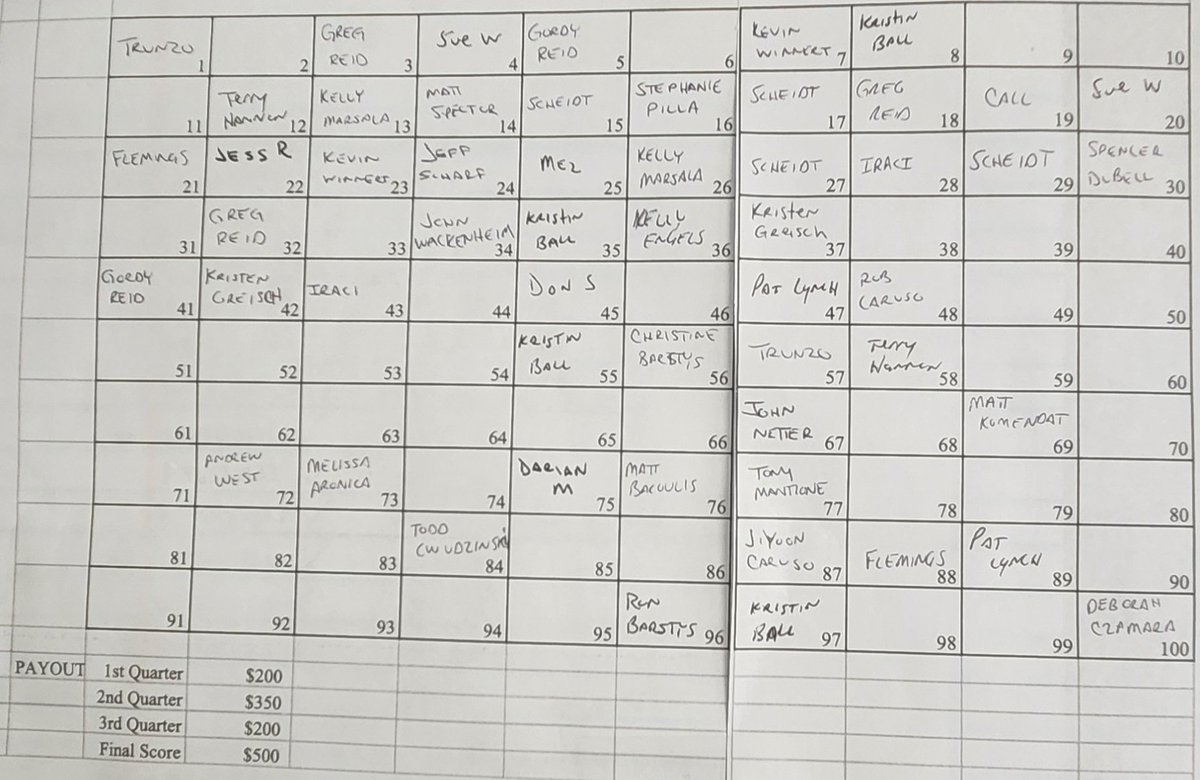 TRUNZO 1
2
GREG
REID 3
Sue W 4
GORDY
REID 5
6
KEVIN
WINNERT 7
KRISTIN
BALL 8
9
10
11
Terry
NANNEN 12
KELLY
MARSALA 13
MATT
SPECTOR 14
SCHEIDT 15
STEPHANIE
PILLA 16
SCHEIDT 17
GREG
REID 18
CALL 19
Sue W 20
FLEMINGS 21
JESS R 22
KEVIN
WINNERT 23
JEFF
SCHARF 24
MEZ 25
KELLY
MARSALA 26
SCHEIDT 27
IRACI 28
SCHEIDT 29
SPENCER
DUBELL 30
31
GREG
REID 32
33
JOHN
WACKENHEIM 34
KRISTIN
BALL 35
KELLY
ENGELS 36
Kristen
Greisch 37
38
39
40
GORDY
REID 41
KRISTEN
GREISCH 42
IRACI 43
44
DON S 45
46
PAT LYNCH 47
ROB
CARUSO 48
49
50
51
52
53
54
KRISTIN
BALL 55
CHRISTINE
BARSTYS 56
TRUNZO 57
Terry
NANNEN 58
59
60
61
62
63
64
65
66
JOHN
NETTER 67
68
MATT
KUMENDAT 69
70
71
ANDREW
WEST 72
MELISSA
ARONICA 73
74
DARIAN
M 75
MATT
BACULIS 76
TONY
MANTIONE 77
78
79
80
81
82
83
TODD
CWUDZINSKI 84
85
86
JIYOON
CARUSO 87
FLEMINGS 88
PAT
LYNCH 89
90
91
92
93
94
95
RON
BARSTYS 96
KRISTIN
BALL 97
98
99
DEBORAH
CZAMARA 100
PAYOUT 1st Quarter $200
2nd Quarter $350
3rd Quarter $200
Final Score $500